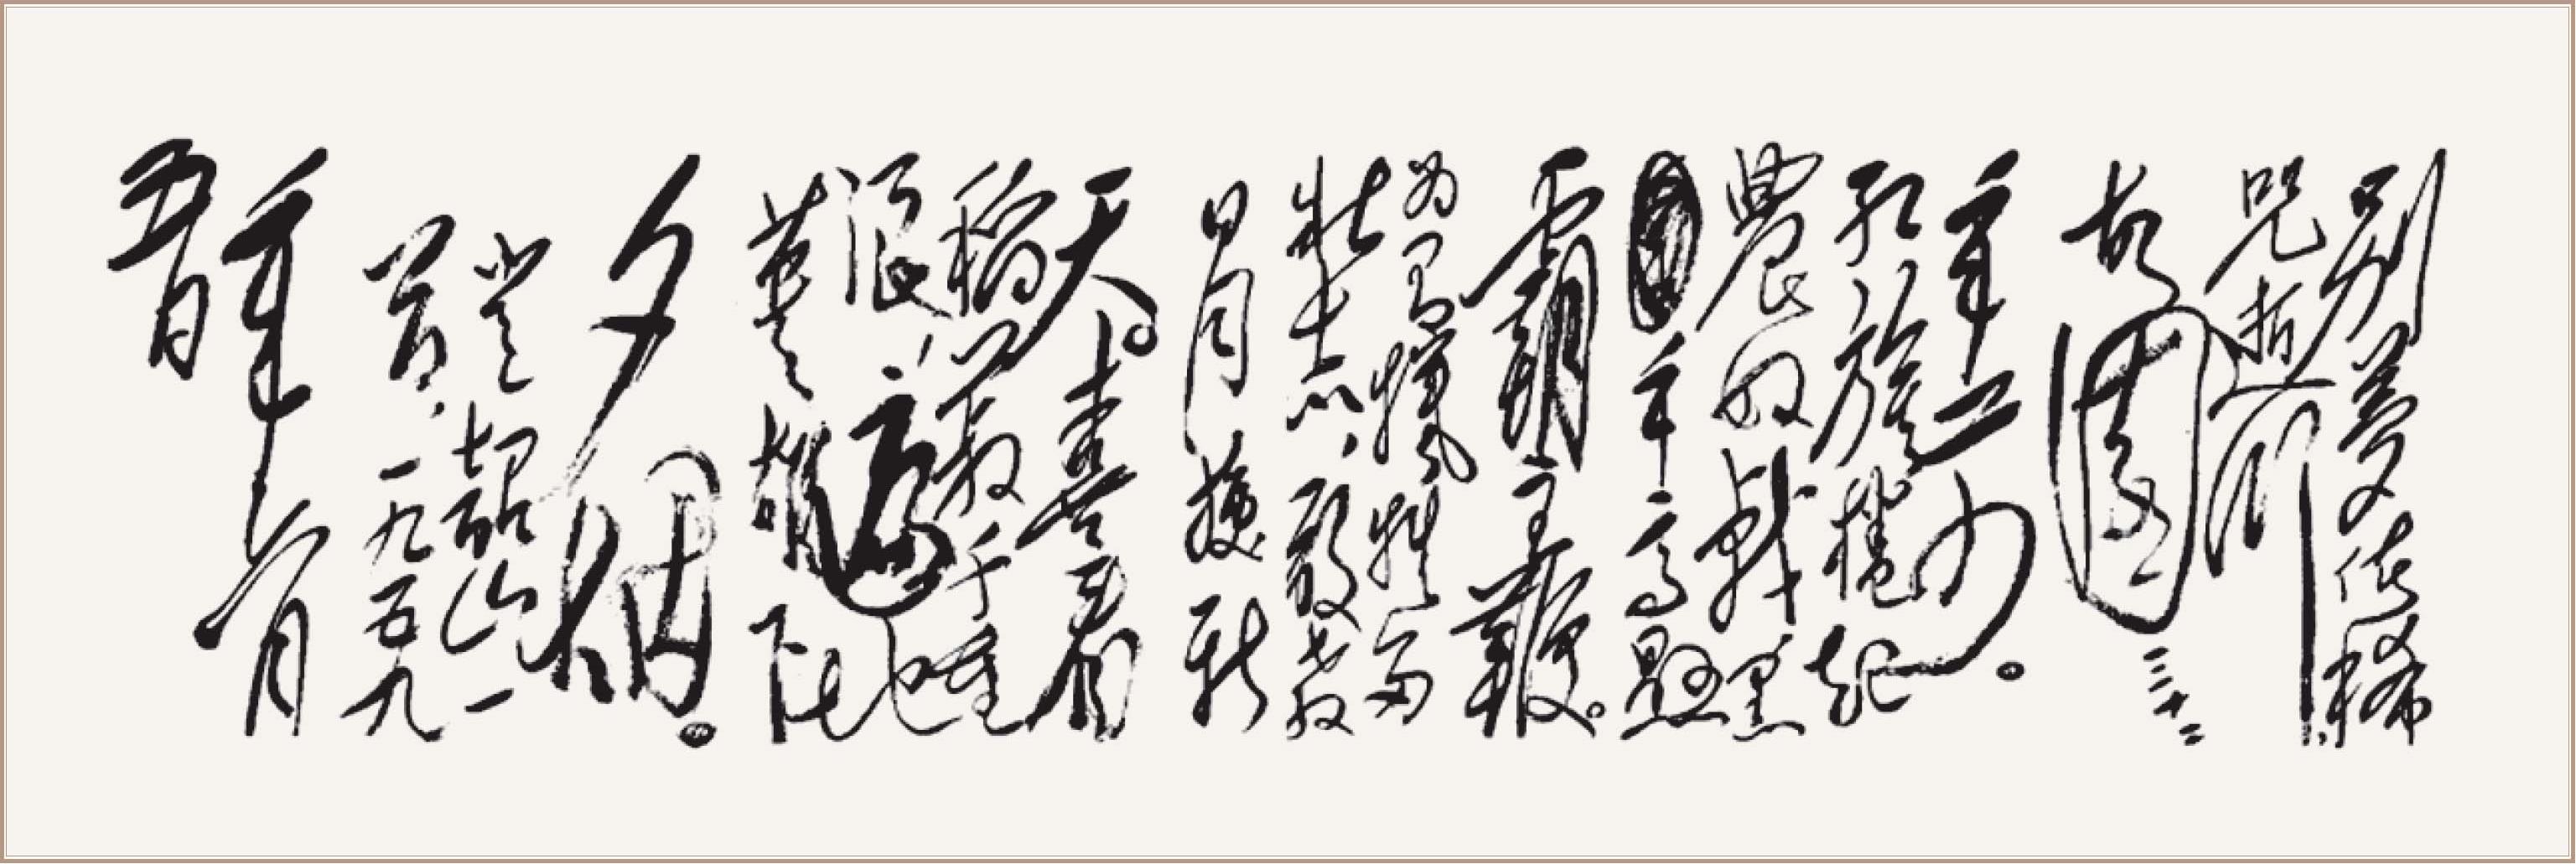 别梦依稀
咒逝川,
故園三十二
年前。
红旗捲起
農奴戟黑
手高懸
霸主鞭。
为有犠牲多
壮志,敢教
日月換新
天。喜看
稻菽千重
浪,遍地
英雄下
夕烟。
登韶山一
首,一九五九
年六月
五日